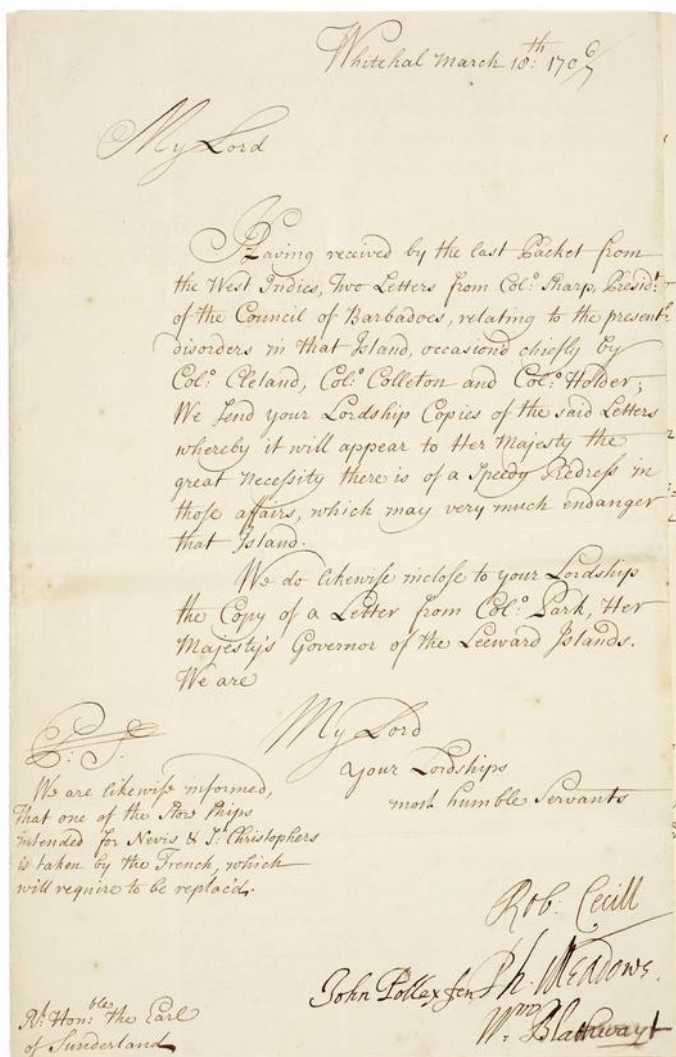 Whitehal March 18:th 170 6/7
My Lord
Having received by the last Packet from
the West Indies, Two Letters from Col:o Sharp, Presid:t
of the Council of Barbadoes, relating to the present
disorders in that Island, occasiond chiefly by
Col:o Cleland, Col:o Colleton and Col:o Holder;
We Send your Lordship Copies of the said Letters
whereby it will appear to Her Majesty the
great Necessity there is of a Speedy Redress in
those affairs, which may very much endanger
that Island.
We do likewise inclose to your Lordship
the Copy of a Letter from Col:o Park, Her
Majesty's Governor of the Leeward Islands.
We are
My Lord
Your Lordships
most humble Servants
P:S:
We are likewise informed,
that one of the Store Ships
intended for Nevis & S:t Christophers
is taken by the French, which
will require to be replac'd.
Rob: Cecill
John Pollexfen Ph. Meadows.
W:m Blathwayt
R:t Hon:ble the Earl
of Sunderland